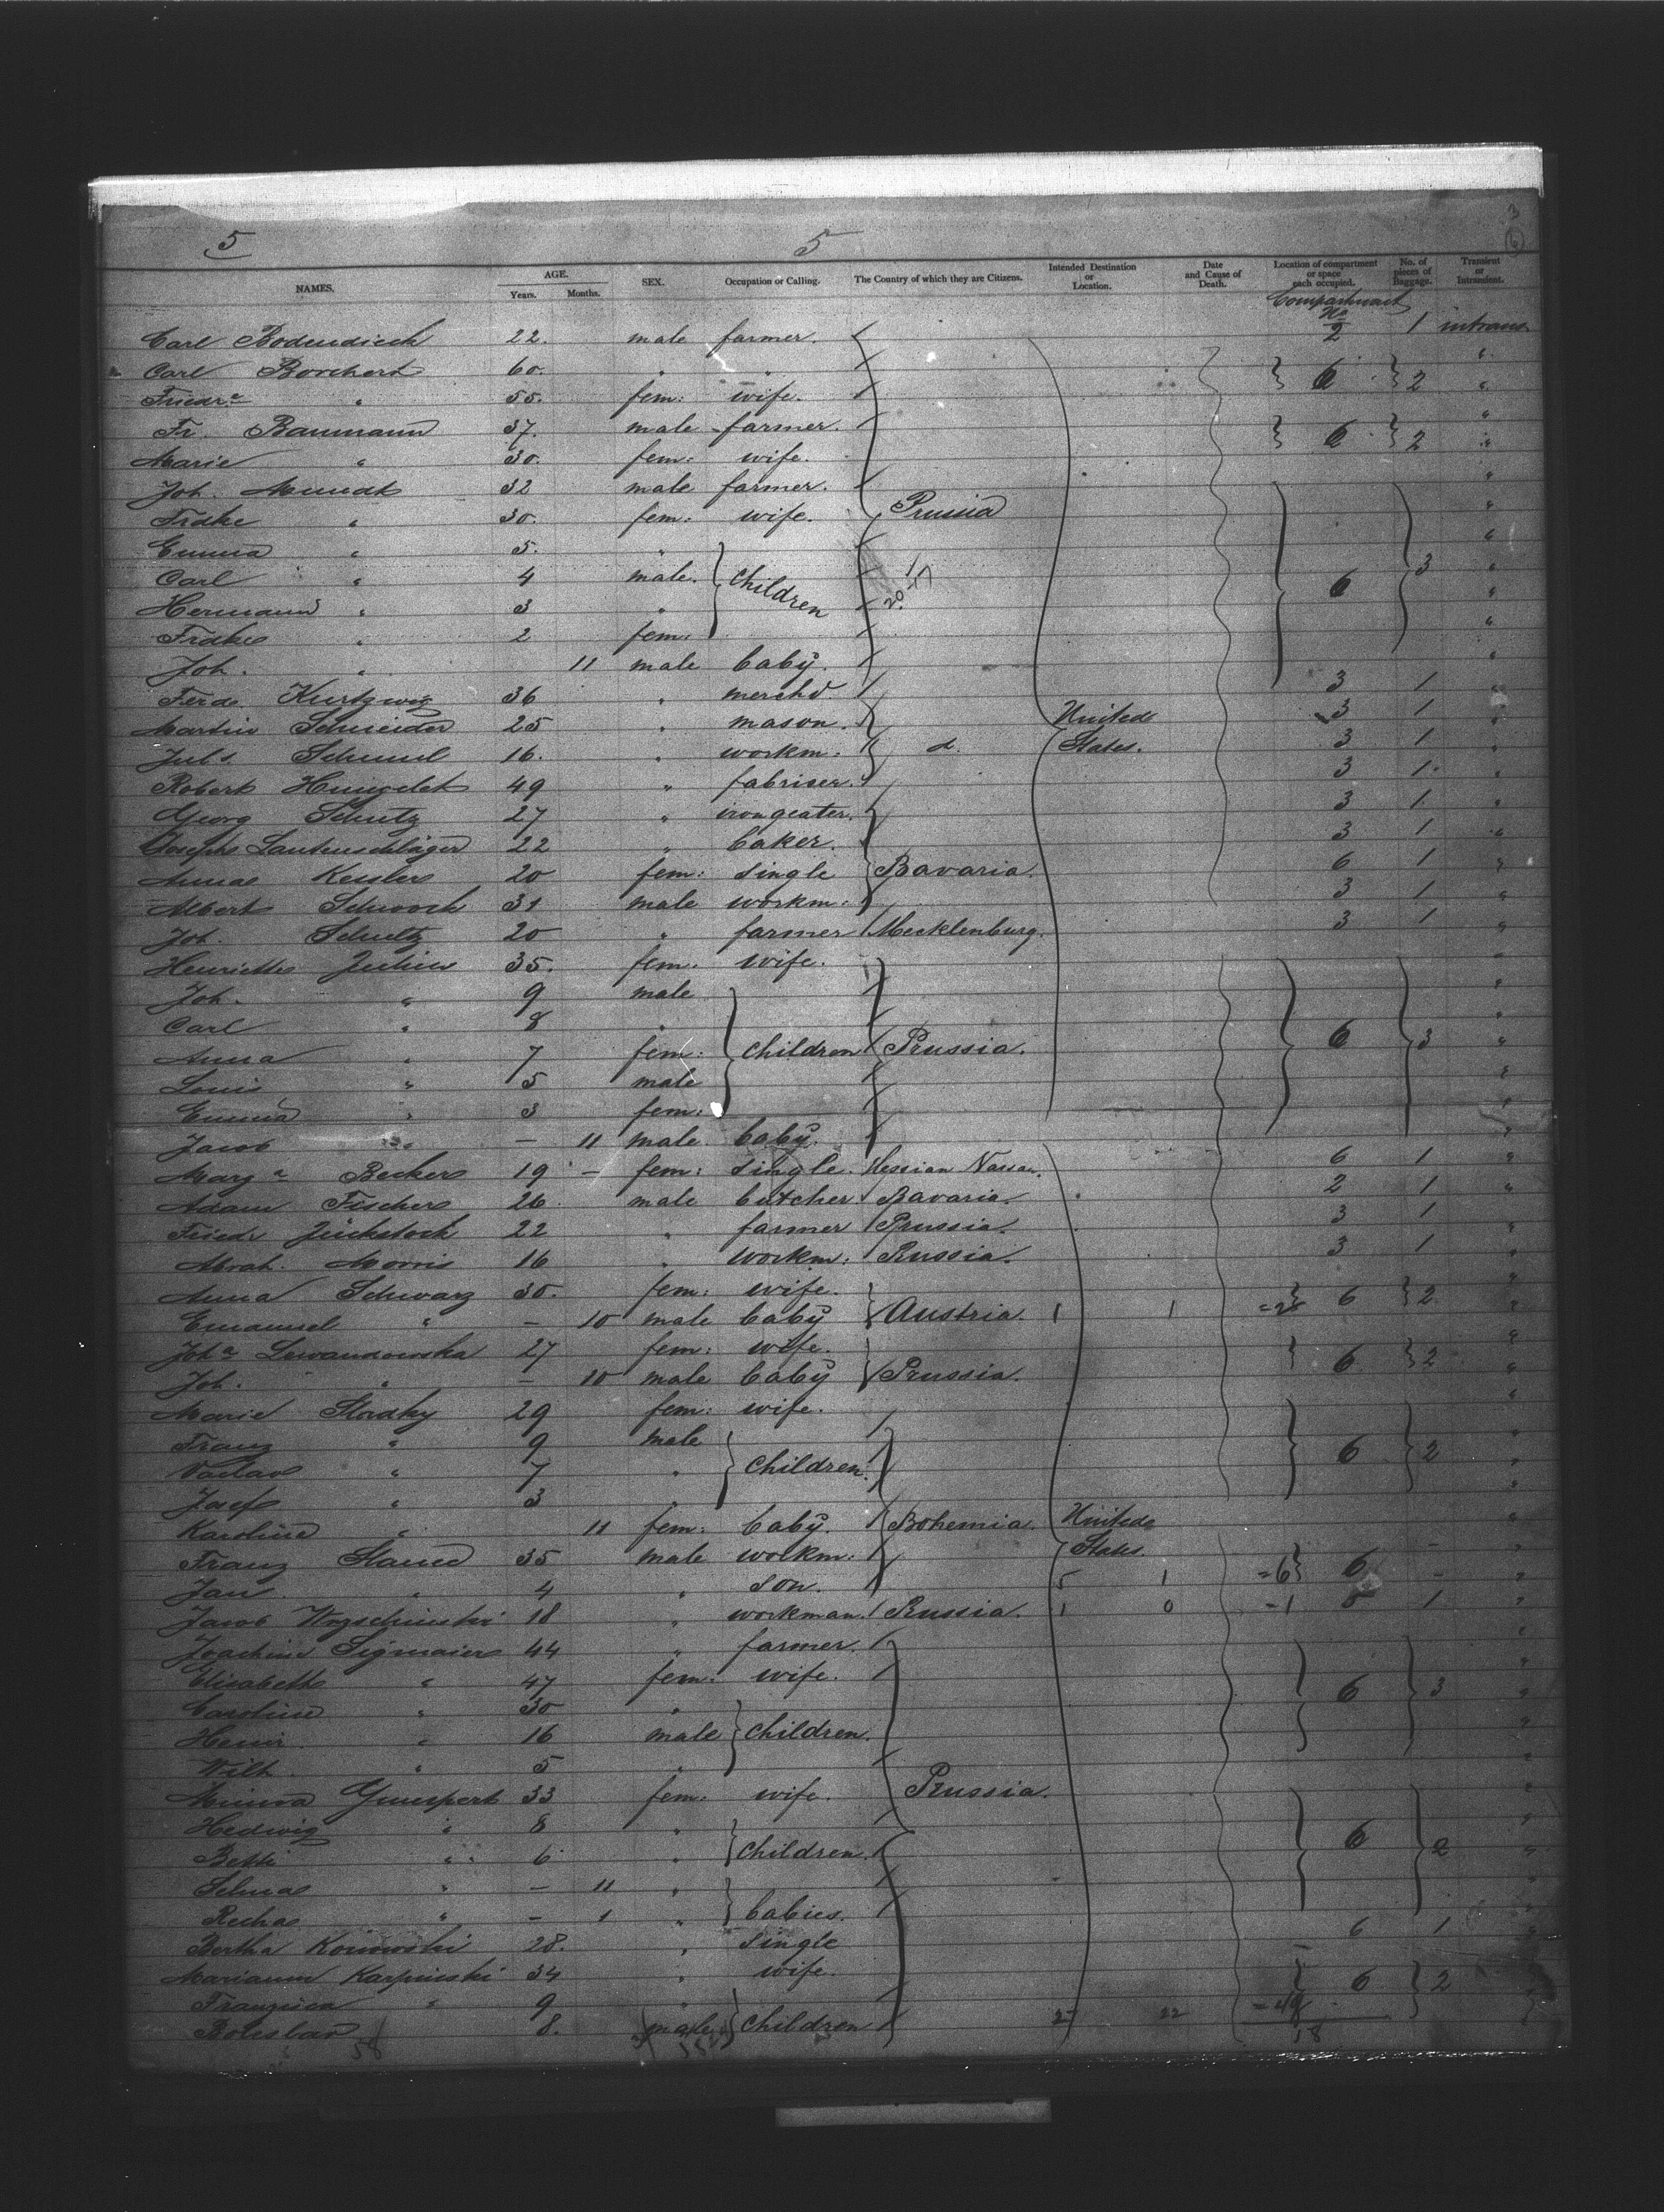 5 5 3 6
NAMES. AGE. Years. Months. SEX. Occupation or Calling. The Country of which they are Citizens. Intended Destination or Location. Date and Cause of Death. Location of compartment or space each occupied. No. of pieces of Baggage. Transient or Intransient.
Compartment
Carl Bodendieck 22. male farmer. No 2 1 intrans
Carl Borchert 60. " " 6 2 "
Friedr.e " 55. fem: wife. "
Fr. Baumann 37. male farmer. 6 2 "
Marie " 30. fem: wife. "
Joh. Mundt 32 male farmer. "
Fridke " 30. fem: wife. Prussia "
Emma " 5. " "
Carl " 4 male. children 6 3 "
Hermann " 3 " "
Fridke " 2 fem: "
Joh. " 11 male baby. "
Ferd. Kurtzweg 36 " merchd. 3 1 "
Martin Schneider 25 " mason. United 3 1 "
Juls. 16. " workm: d. States. 3 1 "
Robert 49 " fabriser. 3 1 "
Georg Schutz 27 " 3 1 "
Joseph Lautenschläger 22 " baker. 3 1 "
Anna Kessler 20 fem: single Bavaria. 6 1 "
Albert Schorsch 31 male workm: 3 1 "
Joh. Schultz 20 " farmer Mecklenburg. 3 1 "
Henriette Julius 35. fem: wife. "
Joh. " 9 male "
Carl " 8 " "
Anna " 7 fem: children Prussia. 6 3 "
Louis " 5 male "
Emma " 3 fem: "
Jacob " — 11 male baby. "
Marg.a Becker 19 — fem: single. Hessian Nassau. 6 1 "
Adam Fischer 26 male butcher Bavaria. 2 1 "
Friedr. Jückstock 22 " farmer Prussia. 3 1 "
Abrah. Morris 16 " workm: Russia. 3 1 "
Anna Schwarz 30. fem: wife. 6 2 "
Emanuel " — 10 male baby Austria. 1 1 =2 "
Joh.a Lewandowska 27 fem: wife. 6 2 "
Joh. " — 10 male baby Prussia. "
Marie Slodky 29 fem: wife. "
Franz " 9 male "
Vaclav " 7 " children. 6 2 "
Josef " 3 " "
Karoline " 11 fem: baby. Bohemia. United "
Franz Staned 35 male workm: States. - "
Jan " 4 " son. 5 1 =6 6 - "
Jacob 18 " workman. Russia. 1 0 =1 5 1 "
Joachim Sigmaier 44 " farmer. "
Elisabeth " 47 fem: wife. "
Caroline " 30 " 6 3 "
Heinr. " 16 male children. "
Wilh. " 5 " "
Minna Gumpert 33 fem: wife. Prussia. "
Hedwig " 8 " "
Betti " 6 " children. 6 2 "
Selma " — 11 " "
Recha " — 1 " babies. "
Bertha 28. " single 6 1 "
Mariann Karpinski 34 " wife. 6 2 "
Franziska " 9 "
Boleslav 8. male children 27 22 18
58